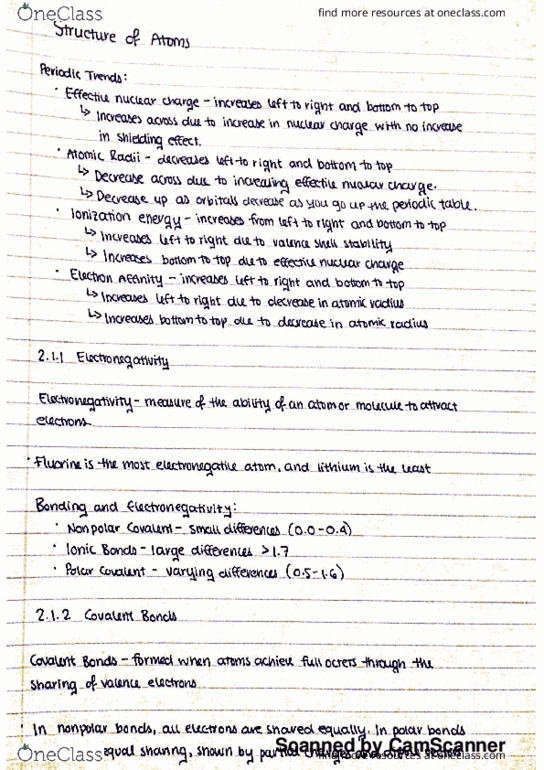 OneClass
find more resources at oneclass.com
Structure of Atoms
Periodic Trends:
• Effective nuclear charge - increases left to right and bottom to top
↳ Increases across due to increase in nuclear charge with no increase
in shielding effect.
• Atomic Radii - decreases left to right and bottom to top
↳ Decrease across due to increasing effective nuclear charge.
↳ Decrease up as orbitals decrease as you go up the periodic table.
• Ionization energy - increases from left to right and bottom to top
↳ Increases left to right due to valence shell stability
↳ Increases bottom to top due to effective nuclear charge
• Electron Affinity - increases left to right and bottom to top
↳ Increases left to right due to decrease in atomic radius
↳ Increases bottom to top due to decrease in atomic radius
2.1.1 Electronegativity
Electronegativity - measure of the ability of an atom or molecule to attract
electrons
• Fluorine is the most electronegative atom, and lithium is the least
Bonding and Electronegativity:
• Nonpolar Covalent - small differences (0.0-0.4)
• Ionic Bonds - large differences >1.7
• Polar Covalent - varying differences (0.5-1.6)
2.1.2 Covalent Bonds
Covalent Bonds - formed when atoms achieve full octets through the
sharing of valence electrons
• In nonpolar bonds, all electrons are shared equally. In polar bonds
equal sharing, shown by partial charges and
Scanned by CamScanner
OneClass
find more resources at oneclass.com